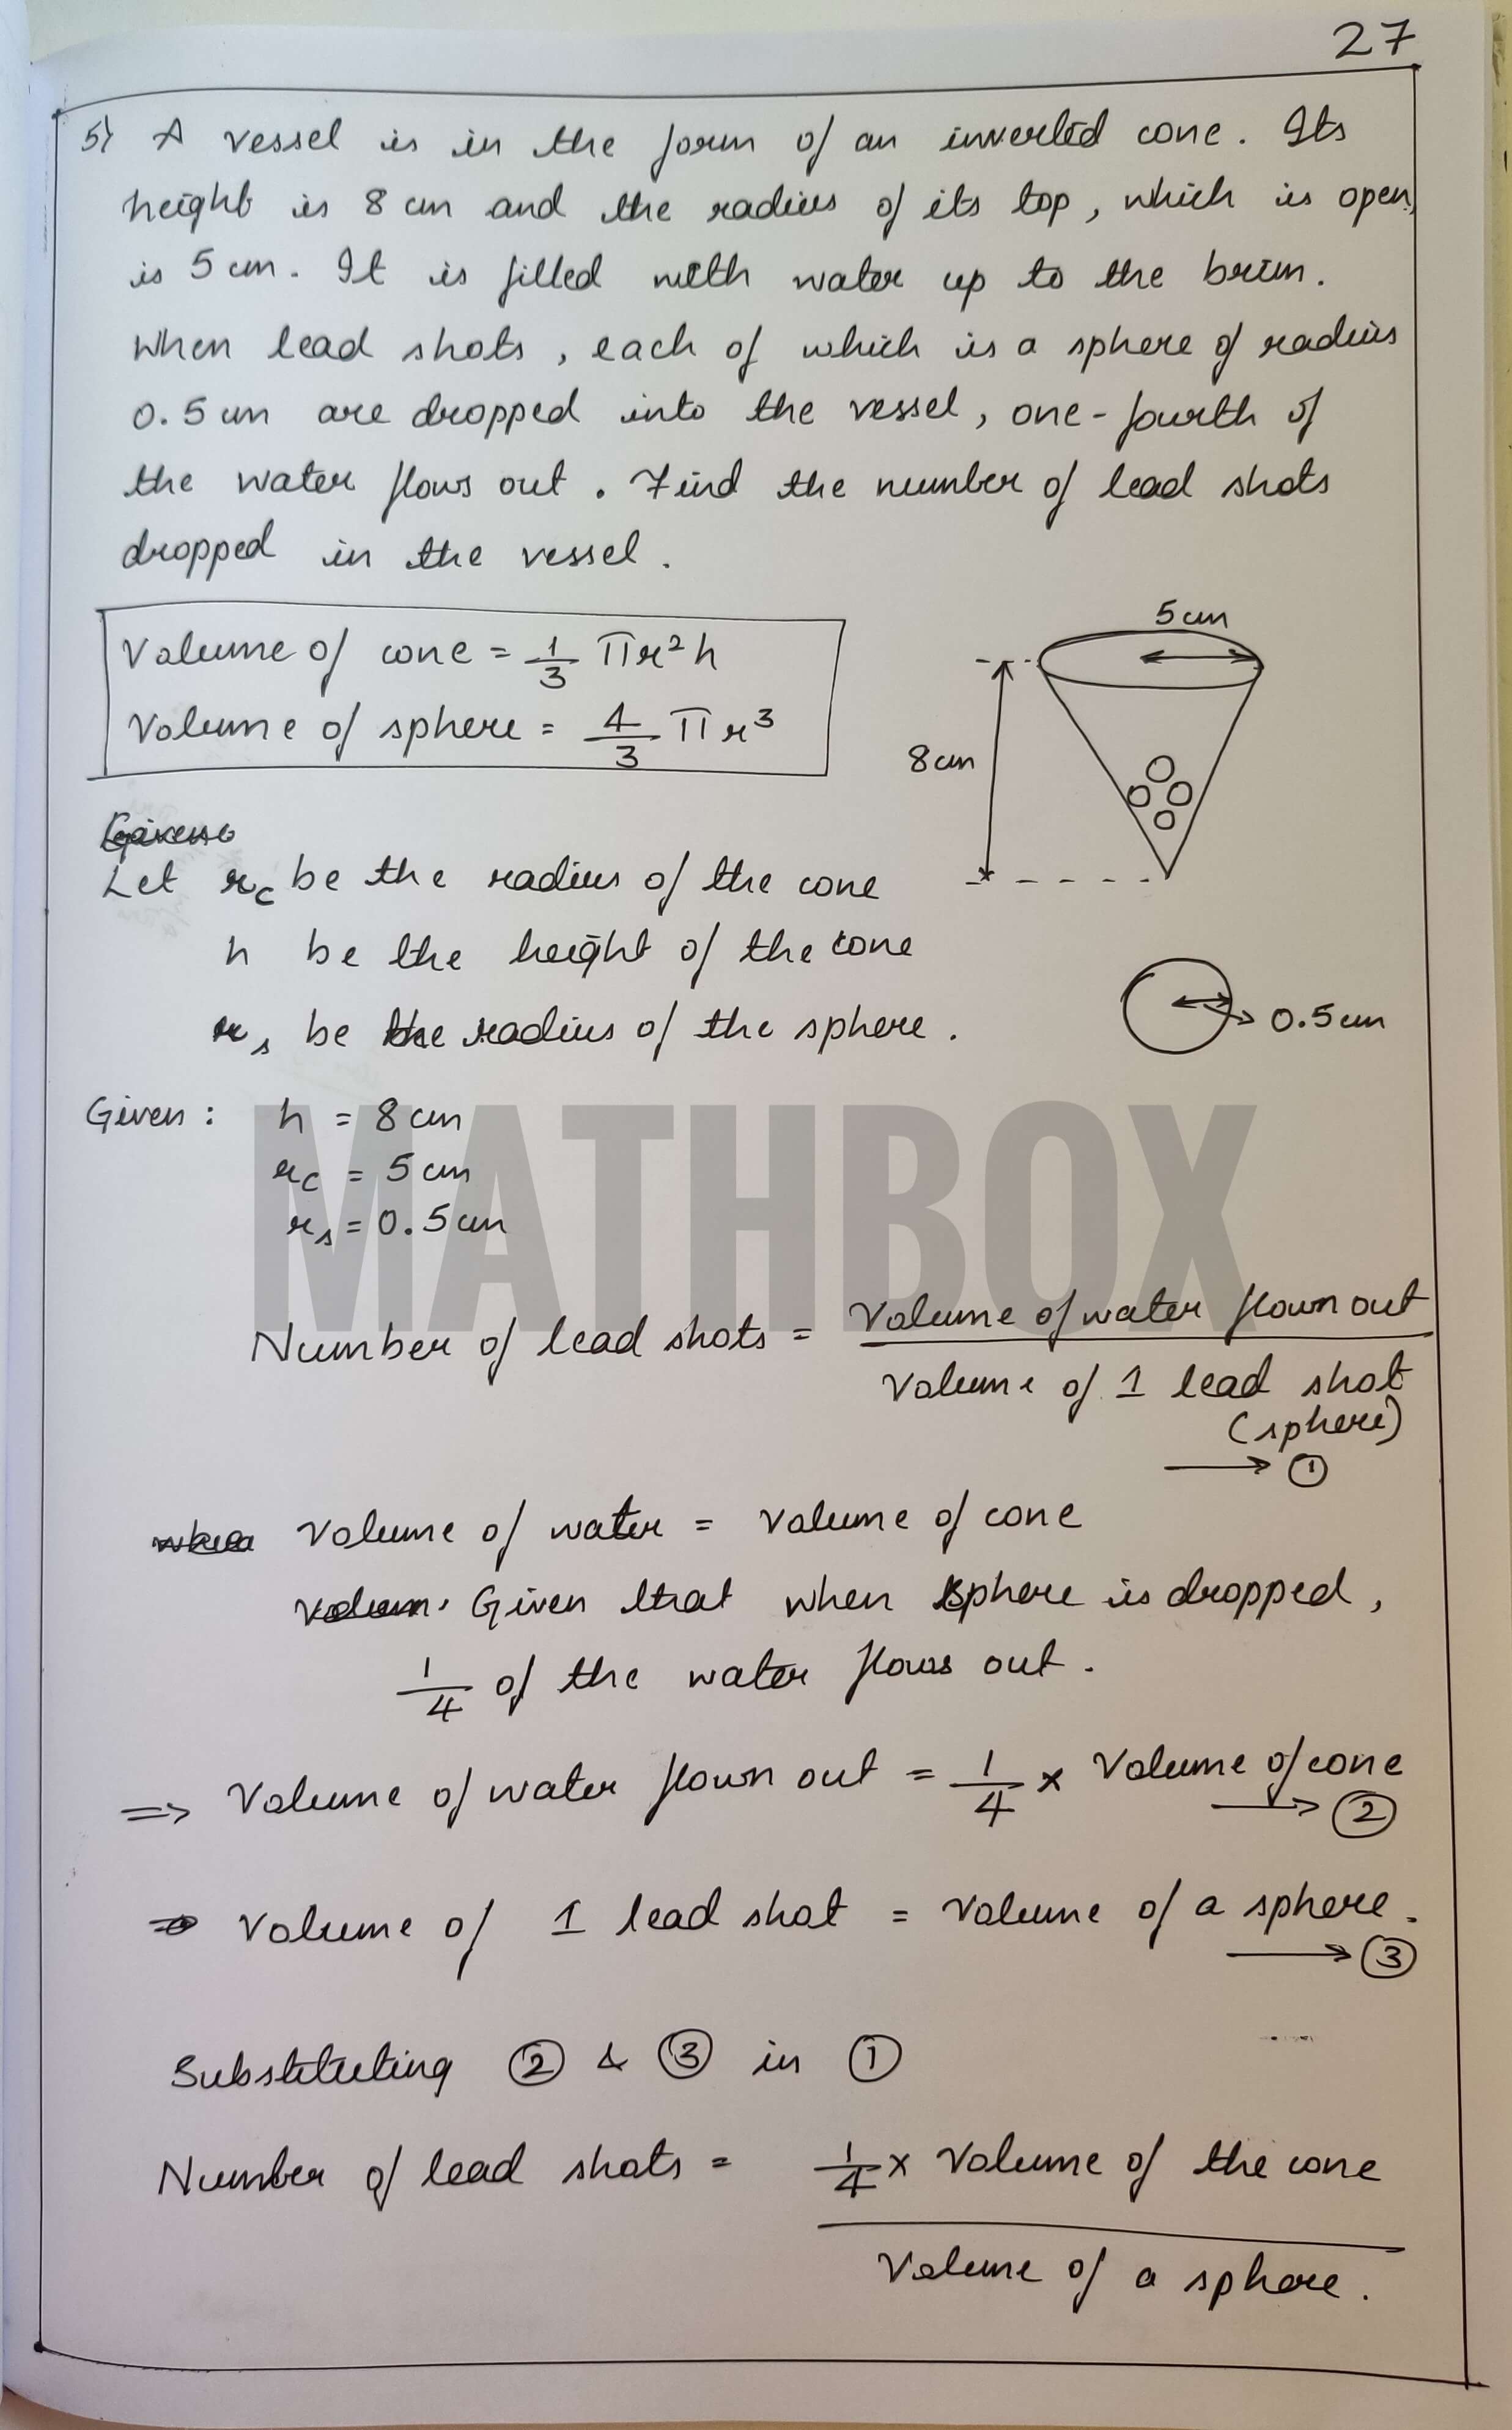 27
5) A vessel is in the form of an inverted cone. Its
height is 8 cm and the radius of its top, which is open,
is 5 cm. It is filled with water up to the brim.
When lead shots, each of which is a sphere of radius
0.5 cm are dropped into the vessel, one-fourth of
the water flows out. Find the number of lead shots
dropped in the vessel.
Volume of cone = 1/3 πr²h
Volume of sphere = 4/3 πr³
5 cm
8 cm
Given
Let r_c be the radius of the cone
h be the height of the cone
r_s be the radius of the sphere.
0.5 cm
Given: h = 8 cm
r_c = 5 cm
r_s = 0.5 cm
MATHBOX
Number of lead shots = Volume of water flown out
Volume of 1 lead shot
(sphere)
→ ①
Volume of water = Volume of cone
Given that when sphere is dropped,
1/4 of the water flows out.
⇒ Volume of water flown out = 1/4 × Volume of cone
→ ②
Volume of 1 lead shot = Volume of a sphere.
→ ③
Substituting ② & ③ in ①
Number of lead shots = 1/4 × Volume of the cone
Volume of a sphere.